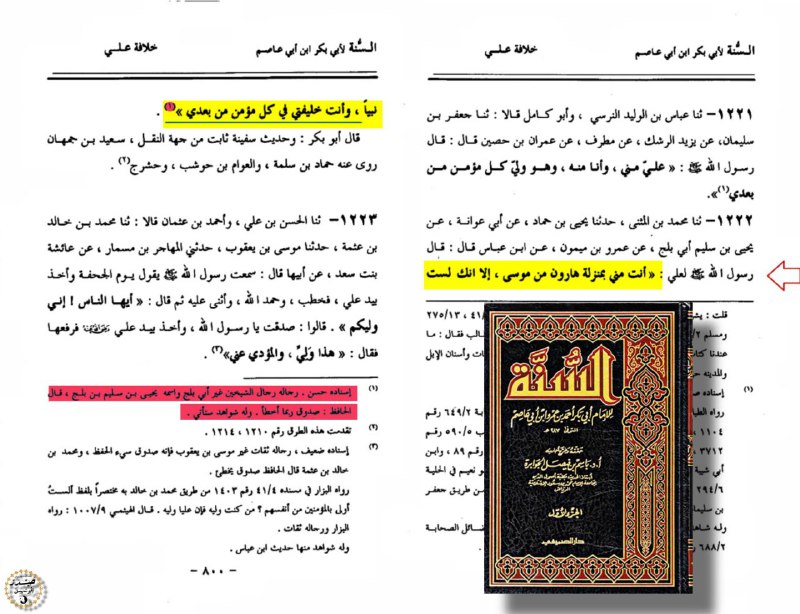 السُّنة لأبي بكر ابن أبي عاصم
خلافة علي
١٢٢١- ثنا عباس بن الوليد النرسي ، وأبو كامل قالا : ثنا جعفر بن
سليمان، عن يزيد الرشك، عن مطرف، عن عمران بن حصين قال : قال
رسول الله ﷺ : « عليّ مني ، وأنا منه ، وهو وليّ كل مؤمن من
بعدي(١)».
١٢٢٢- ثنا محمد بن المثنى ، حدثنا يحيى بن حماد ، عن أبي عوانة ، عن
يحيى بن سليم أبي بلج ، عن عمرو بن ميمون ، عن ابن عباس قال : قال
رسول الله ﷺ لعلي : « أنت مني بمنزلة هارون من موسى ، إلا انك لست
قلت :
٤١ ، ٢٧٥/١٣
ومسلم
فقال : ما
عندنا كتا
وأسنان الإبل
والمدينة
(١)
رواه الط
٦٤٩/٢ رقم
١١٠٤
٥٩٠/٥ رقم
٣٧١٢
رقم ٨٩ ، وابن
أبي شيبة
نعيم في الحلية
٢٩٤/٦
من طريق جعفر
بن سليما
وله شاهد
فضائل الصحابة
٦٨٨/٢
السنة
للإمام أبي بكر أحمد بن عمرو ابن أبي عاصم
أ.د. باسم بن فيصل الجوابرة
الجزء الأول
دار الصميعي
السُّنة لأبي بكر ابن أبي عاصم
خلافة علي
نبياً ، وأنت خليفتي في كل مؤمن من بعدي »(١) .
قال أبو بكر : وحديث سفينة ثابت من جهة النقل ، سعيد بن جمهان
روى عنه حماد بن سلمة ، والعوام بن حوشب ، وحشرج(٢) .
١٢٢٣- ثنا الحسن بن علي ، وأحمد بن عثمان قالا : ثنا محمد بن خالد
بن عثمة ، حدثنا موسى بن يعقوب ، حدثني المهاجر بن مسمار ، عن عائشة
بنت سعد ، عن أبيها قال : سمعت رسول الله ﷺ يقول يوم الجحفة وأخذ
بيد علي ، فخطب ، وحمد الله ، وأثنى عليه ثم قال : « أيها الناس ! إني
وليكم » . قالوا : صدقت يا رسول الله ، وأخذ بيد علي رضي الله عنه فرفعها
فقال : « هذا وَليِّ ، والمؤدي عني»(٣) .
(١) إسناده حسن . رجاله رجال الشيخين غير أبي بلج واسمه يحيى بن سليم بن بلج ، قال
الحافظ : صدوق ربما أخطأ . وله شواهد ستأتي .
(٢) تقدمت هذه الطرق رقم ١٢١٠ ، ١٢١٤ .
(٣) إسناده ضعيف ، رجاله ثقات غير موسى بن يعقوب فإنه صدوق سيء الحفظ ، ومحمد بن
خالد بن عثمة قال الحافظ صدوق يخطئ .
رواه البزار في مسنده ٤١/٤ رقم ١٤٠٣ من طريق محمد بن خالد به مختصراً بلفظ ألستُ
أولى بالمؤمنين من أنفسهم ؟ من كنت وليه فإن علياً وليه . قال الهيثمي ١٠٠٧/٩ : رواه
البزار ورجاله ثقات .
وله شواهد منها حديث ابن عباس .
- ٨٠٠ -